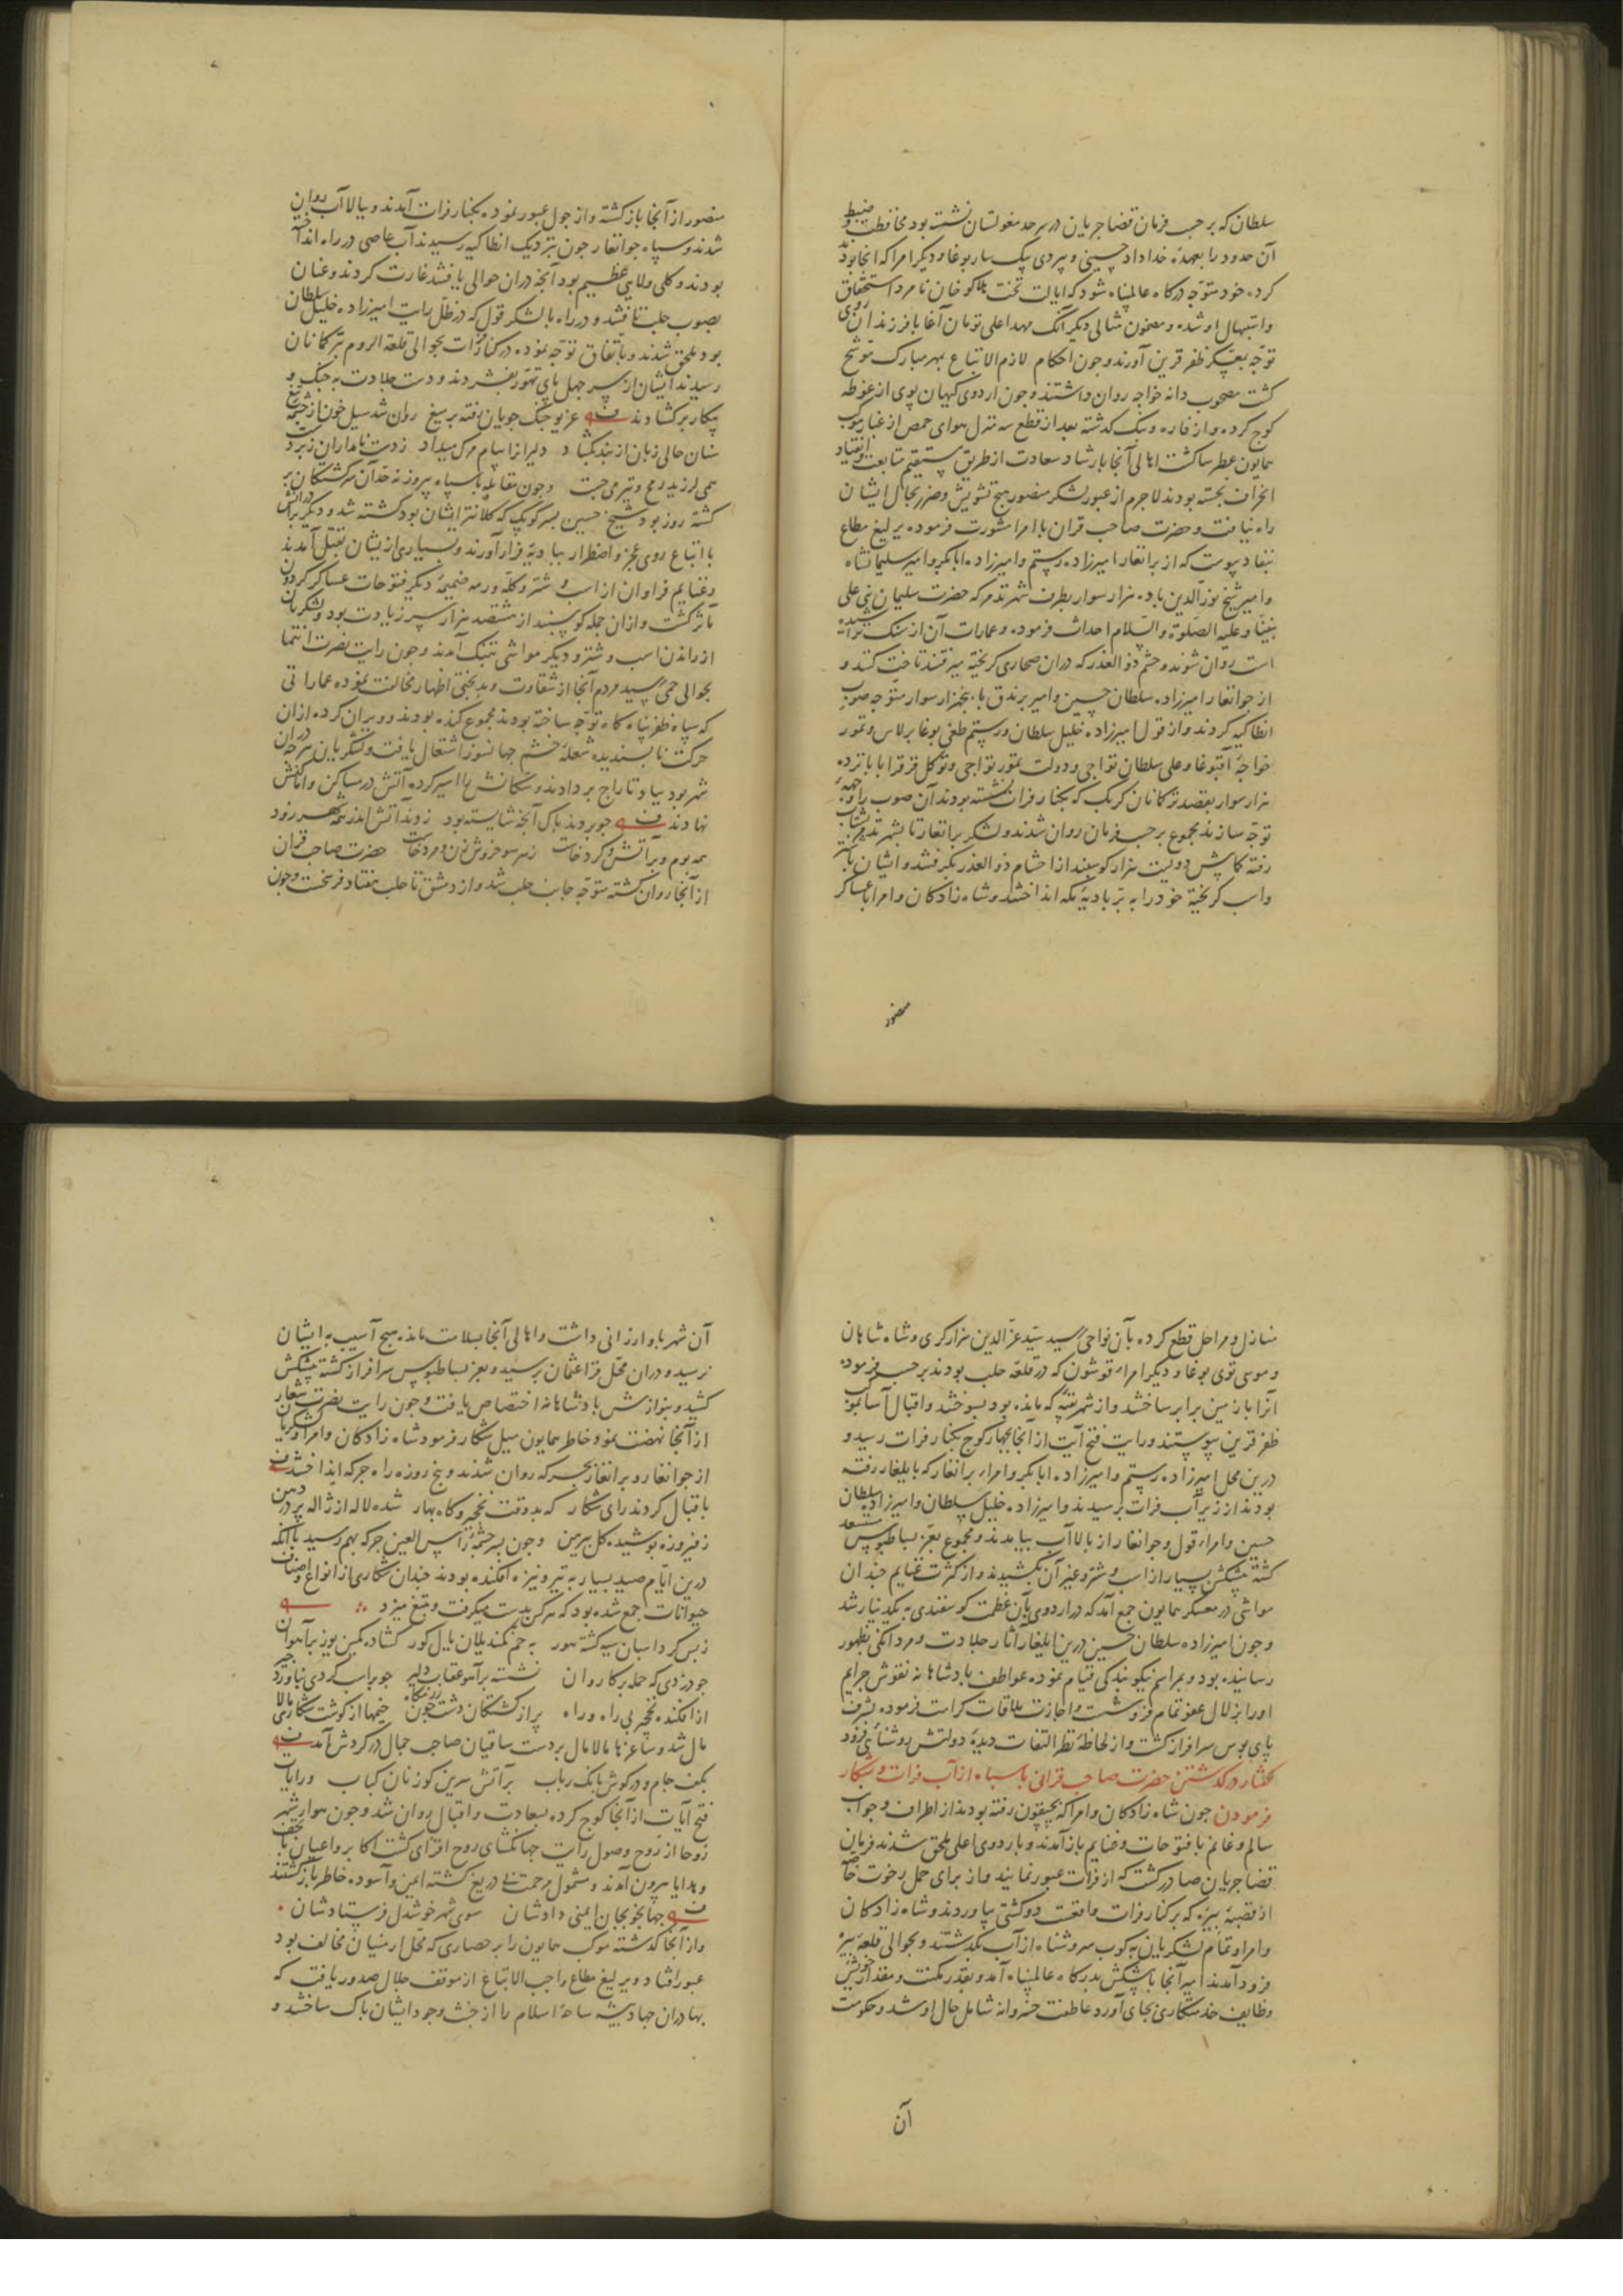 سلطان که بر حسب فرمان قضا جریان در سرحد مغولستان نشسته بود محافظت و ضبط
آن حدود را بعهدهٔ خداداد حسینی و بیردی بیک ساربوغا و دیگر امرا که آنجا بودند
کرده خود متوجه درگاه عالم‌پناه شود که ایالت تخت هلاکو خان نامزد استحقاق
و استیهال او شده و مضمون مثالی دیگر آنک مهد اعلی تومان آغا با فرزندان روی
توجه بمعسکر ظفر قرین آورند و چون احکام لازم الاتباع بمهر مبارک موشح
گشت مصحوب دانه خواجه روان داشتند و چون اردوی کیهان پوی از غوطه
کوچ کرده و از قاره و نبک گذشته بعد از قطع سه منزل هوای حمص از غبار موکب
همایون عطرسا گشت اهالی آنجا بارشاد سعادت از طریق مستقیم متابعت و انقیاد
انحراف نجسته بودند لاجرم از عبور لشکر منصور هیچ تشویش و ضرر بحال ایشان
راه نیافت و حضرت صاحب قران با امرا مشورت فرموده یرلیغ مطاع
بنفاد پیوست که از برانغار امیرزاده رستم و امیرزاده ابابکر و امیر سلیمانشاه
و امیر شیخ نور الدین با ده هزار سوار بطرف شهر تدمر که حضرت سلیمان نبی علی
نبینا و علیه الصلوة والسلام احداث فرموده و عمارات آن از سنک تراشیده
است روان شوند و حشم ذو القدر که دران صحاری گریخته میرفتند تاخت کنند و
از جوانغار امیرزاده سلطان حسین و امیر برندق با پنجهزار سوار متوجه صوب
انطاکیه کردند و از قول امیرزاده خلیل سلطان و رستم طغی بوغا برلاس و تمور
خواجهٔ آقبوغا و علی سلطان تواجی و دولت تمور تواجی و توکل قرقرا با پانزده
هزار سوار بقصد ترکمانان کوبک که بکنار فرات نشسته بودند آن صوب را وجههٔ
توجه سازند مجموع بر حسب فرمان روان شدند و لشکر برانغار تا بشهر تدمر بشتاب
رفته کمابیش دویست هزار گوسپند از احشام ذو القدر بگرفتند و ایشان
و اسب گریخته خود را به بر بادیهٔ مکه انداختند و شاه زادکان و امرا با عساکر
منصور
منصور از آنجا بازگشته و از چول عبور نموده بکنار فرات آمدند و ببالا آب روان
شدند و سپاه جوانغار چون بنزدیک انطاکیه رسیدند آب عاصی در راه انداخته
بودند و کلی ولایتی عظیم بود آنچه دران حوالی یافتند غارت کردند و عنان
بصوب حلب تافتند و در راه با لشکر قول که در ظل رایت امیرزاده خلیل سلطان
بود ملحق شدند و باتفاق توجه نموده در کنار فرات بحوالی قلعة الروم بترکمانان
رسیدند ایشان از سر جهل پای تهور بفشردند و دست جلادت به جنک و
پیکار برکشادند غریو جنک جویان رفته بر میغ روان شد سیل خون از چشمهٔ تیغ
سنان حالی زبان از بند بگشاد دلیرانرا پیام مرک میداد ز دست نامداران زبردست
همی لرزید رمح و تیر می جست و چون مقابله با سپاه پیروز نه حد آن سرگشتکان بر
گشته روز بود شیخ حسین پسر کوبک که کلانتر ایشان بود کشته شد و دیگر برادرانش
با اتباع روی عجز و اضطرار ببادیهٔ فرار آوردند و بسیاری از یشان بقتل آمدند
و غنایم فراوان از اسب و شتر و گله و رمه ضمیمهٔ دیگر فتوحات عساکر گردون
مآثر گشت و ازان جمله گوسپند از هشتصد هزار سر زیادت بود و لشکریان
از راندن اسب و شتر و دیگر مواشی بتنک آمدند و چون رایت نصرت انتما
بحوالی حمی رسید مردم آنجا از شقاوت و بدبختی اظهار مخالفت نموده عماراتی
که سپاه ظفر پناه گاه توجه ساخته بودند مجموع کنده بودند و ویران کرده ازان
حرکت ناپسندیده شعلهٔ خشم جهانسوز اشتعال یافت و لشکریان هرچه دران
شهر بود بباد تاراج بردادند و سکانش را اسیر کرده آتش در مساکن و اماکنش
نهادند چو بردند پاک آنچه شایسته بود زدند آتش اندر همه هر زود
همه بوم و بر آتش و گرد خاست ز هر سو خروش زن و مرد خاست حضرت صاحب قران
از آنجا روان گشته متوجه جانب حلب شد و از دمشق تا حلب هفتاد فرسخست و چون
منازل و مراحل قطع کرده بآن نواحی رسید سید عز الدین هزارگری و شاه شاهان
و موسی توی بوغا و دیگر امراء قوشون که در قلعهٔ حلب بودند بر حسب فرموده
آنرا با زمین برابر ساختند و از شهر تتمه که مانده بود بسوختند و اقبال آسا بموکب
ظفر قرین پیوستند و رایت فتح آیت از آنجا بچهار کوچ بکنار فرات رسید و
درین محل امیرزاده رستم و امیرزاده ابابکر و امراء برانغار که بایلغار رفته
بودند از زیر آب فرات برسیدند و امیرزاده خلیل سلطان و امیرزاده سلطان
حسین و امراء قول و جوانغار از بالا آب بیامدند و مجموع بعز بساط بوس مستسعد
گشته پیشکش بسیار از اسب و شتر و غیر آن بکشیدند و از کثرت غنایم چندان
مواشی در معسکر همایون جمع آمد که در اردوی بآن عظمت گوسفندی به یکدینار شد
و چون امیرزاده سلطان حسین درین ایلغار آثار جلادت و مردانکی بظهور
رسانیده بود و بمراسم نیکو بندگی قیام نموده عواطف بادشاهانه نقوش جرایم
او را بزلال عفو تمام فروشست و اجازت ملاقات کرامت فرموده بشرف
پای بوس سرافراز گشت و از لحاظهٔ نظر التفات دیدهٔ دولتش روشنائی فزود
گفتار در گذشتن حضرت صاحب قرانی با سپاه از آب فرات و شکار
فرمودن چون شاه زادکان و امرا که بچپقون رفته بودند از اطراف و جوانب
سالم و غانم با فتوحات و غنایم بازآمدند و باردوی اعلی ملحق شدند فرمان
قضا جریان صادر گشت که از فرات عبور نمایند و از برای حمل رخوت خاصه
از قصبهٔ بیره که بر کنار فرات واقعست دو کشتی بیاوردند و شاه زادکان
و امرا و تمام لشکریان به کوب سر و شناه از آب بگذشتند و بحوالی قلعه بیره
فرود آمدند امیر آنجا با پیشکش بدرگاه عالم‌پناه آمد و بقدر مکنت و مقدار خویش
وظایف خدمتکاری بجای آورد عاطفت خسروانه شامل حال او شد و حکومت
آن
آن شهر باو ارزانی داشت و اهالی آنجا بسلامت مانده هیچ آسیب به ایشان
نرسید و دران محل قرا عثمان برسید و بعز بساط بوس سرافراز گشته پیشکش
کشید و بنوازش بادشاهانه اختصاص یافت و چون رایت نصرت شعار
از آنجا نهضت نمود خاطر همایون میل شکار فرمود شاه زادکان و امرا و لشکریان
از جوانغار و برانغار بجرکه روان شدند و پنج روزه راه جرکه انداختند
باقبال کردند رای شکار که بد وقت نخچیر و گاه بهار شده لاله از ژاله پر در دهن
ز فیروزه پوشیده گل پیرهن و چون بسرچشمهٔ راس العین جرکه بهم رسید با آنکه
درین ایام صید بسیار به تیر و نیزه افکنده بودند چندان شکاری از انواع و اصناف
حیوانات جمع شده بود که هرکس بدست میگرفت و بتیغ میزد
ز بس گرد اسبان سیه گشته هور به خم کمند یلان یال گور گشاده کمین یوز بر آهوان
چو دزدی که حمله بر کاروان نشسته بر آهو عقاب دلیر چو بر اسب گردی نبرد آورد چیر
از افکنده نخچیر بی راه و راه پر از کشتکان دشت چون رزمگاه خیمها از گوشت شکاری مالا
مال شد و ساغرها مالامال بر دست ساقیان صاحب جمال در گردش آمد
بکف جام و در گوش بانک رباب بر آتش سرین گوزنان کباب و رایات
فتح آیات از آنجا کوچ کرده بسعادت و اقبال روان شد و چون هوار شهر
روحا از روح وصول رایت جهانگشای روح افزای گشت اکابر و اعیان با تحف
و هدایا بیرون آمدند و مشمول مرحمت بی دریغ گشته ایمن و آسوده خاطر بازگشتند
جهانجو بجان ایمنی دادشان سوی شهر خوشدل فرستادشان
و از آنجا گذشته موکب همایون را بر حصاری که محل ارمنیان مخالف بود
عبور افتاد و یرلیغ مطاع واجب الاتباع از موقف جلال صدور یافت که
بهادران جهاد پیشه ساحهٔ اسلام را از خبث وجود ایشان پاک ساختند و